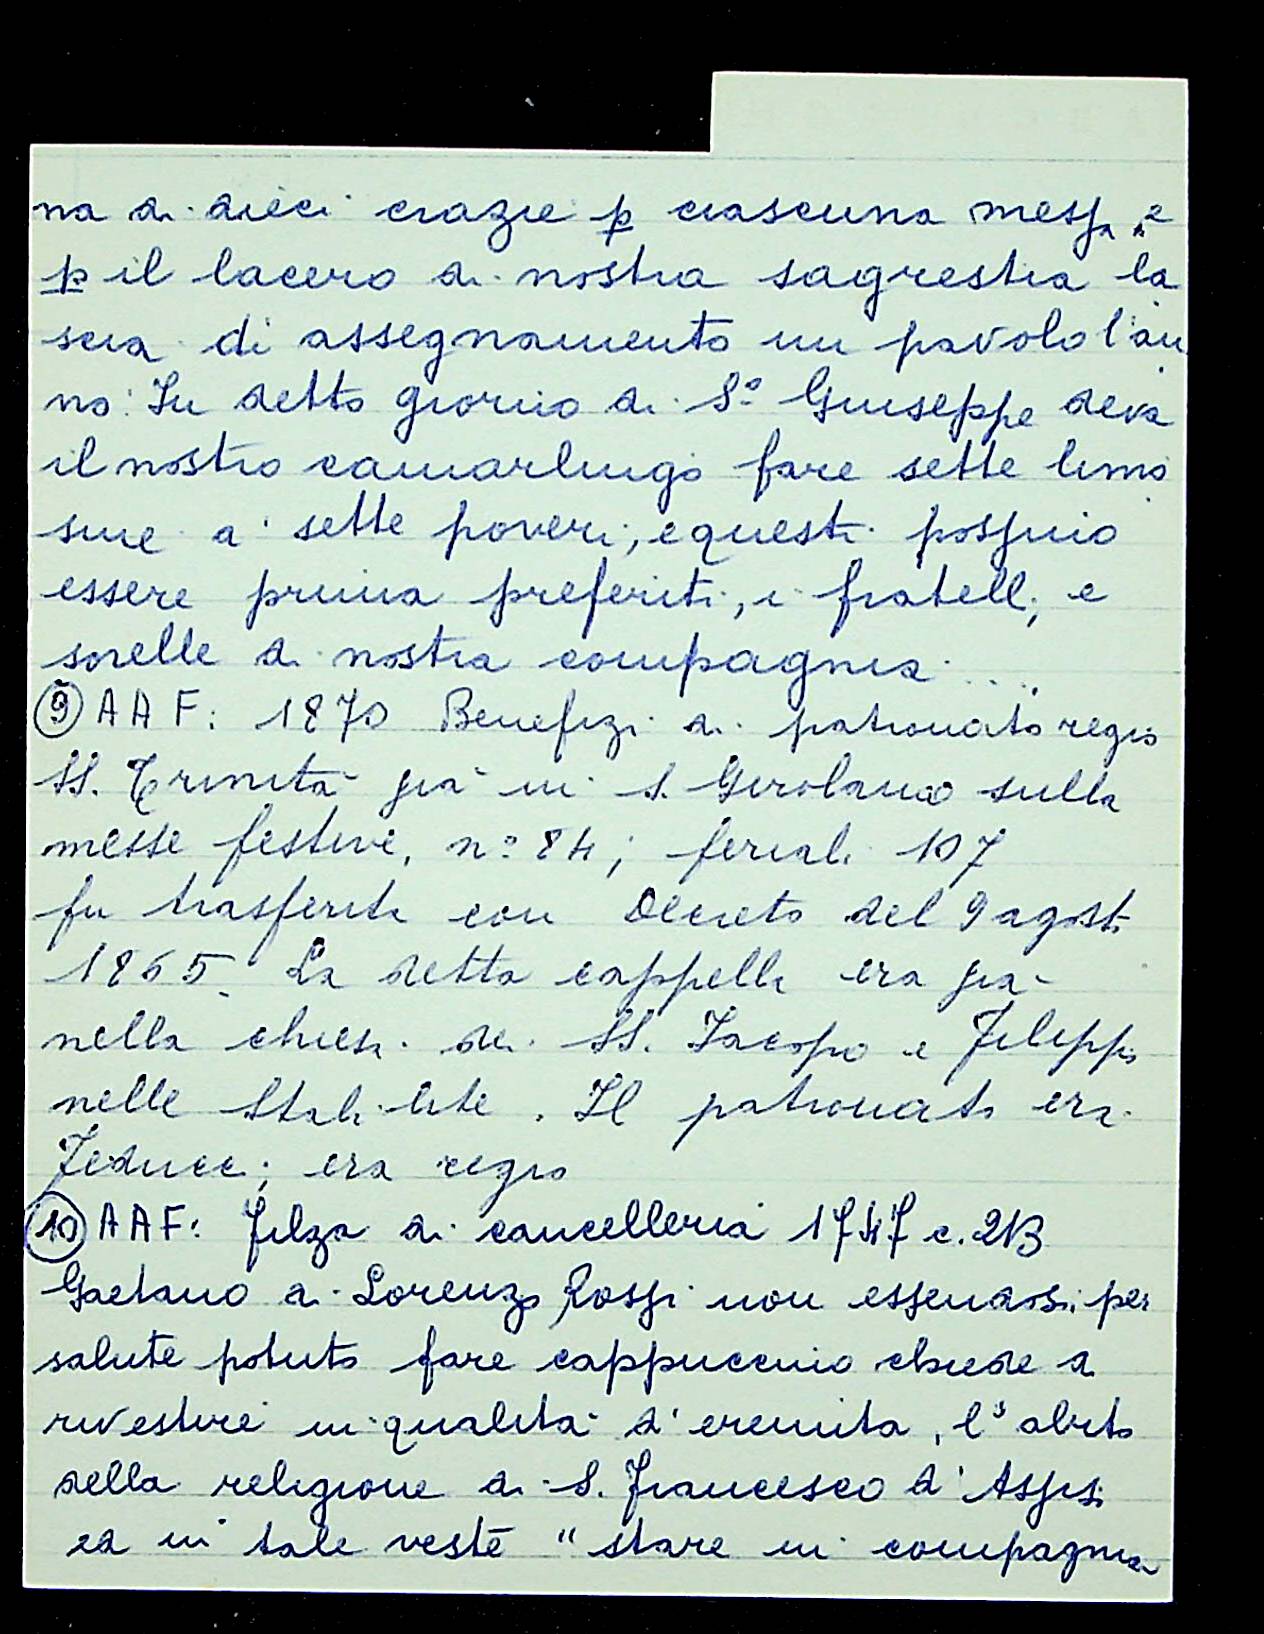 na di dieci crazie p ciascuna messa, e
p il lacero di nostra sagrestia la
scia di assegnamento un pavolo l'an
no. In detto giorno di S.o Giuseppe deva
il nostro camarlingo fare sette limo
sine a' sette poveri, e questi possino
essere prima preferiti, i fratelli, e
sorelle di nostra compagnia ....
9 AAF: 1870 Benefizi di patronato regio
SS. Trinità già in S. Girolamo sulla
messe festive, n.o 84; feriali 107
fu trasferita con Decreto del 9 agosto
1865. La detta cappella era già
nella chiesa dei SS. Jacopo e Filippo
nelle Stabilite. Il patronato era
era regio
10 AAF: Filza di cancelleria 1747 c. 213
Gaetano di Lorenzo Rossi non essendosi per
salute potuto fare cappuccino chiede di
rivestire in qualità d'eremita, l'abito
della religione di S. Francesco d'Assisi
ed in tale veste "stare in compagnia